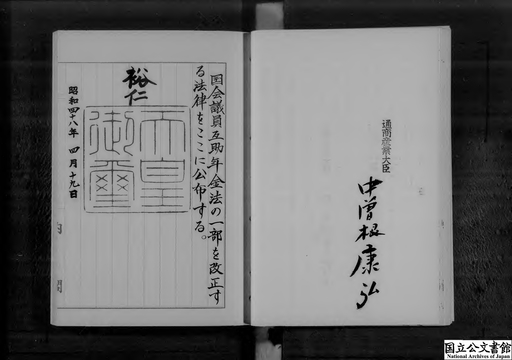 国会議員互助年金法の一部を改正す
る法律をここに公布する。
裕仁
天皇
御璽
昭和四十八年 四月 十九日
通商産業大臣
中曽根康弘
国立公文書館
National Archives of Japan